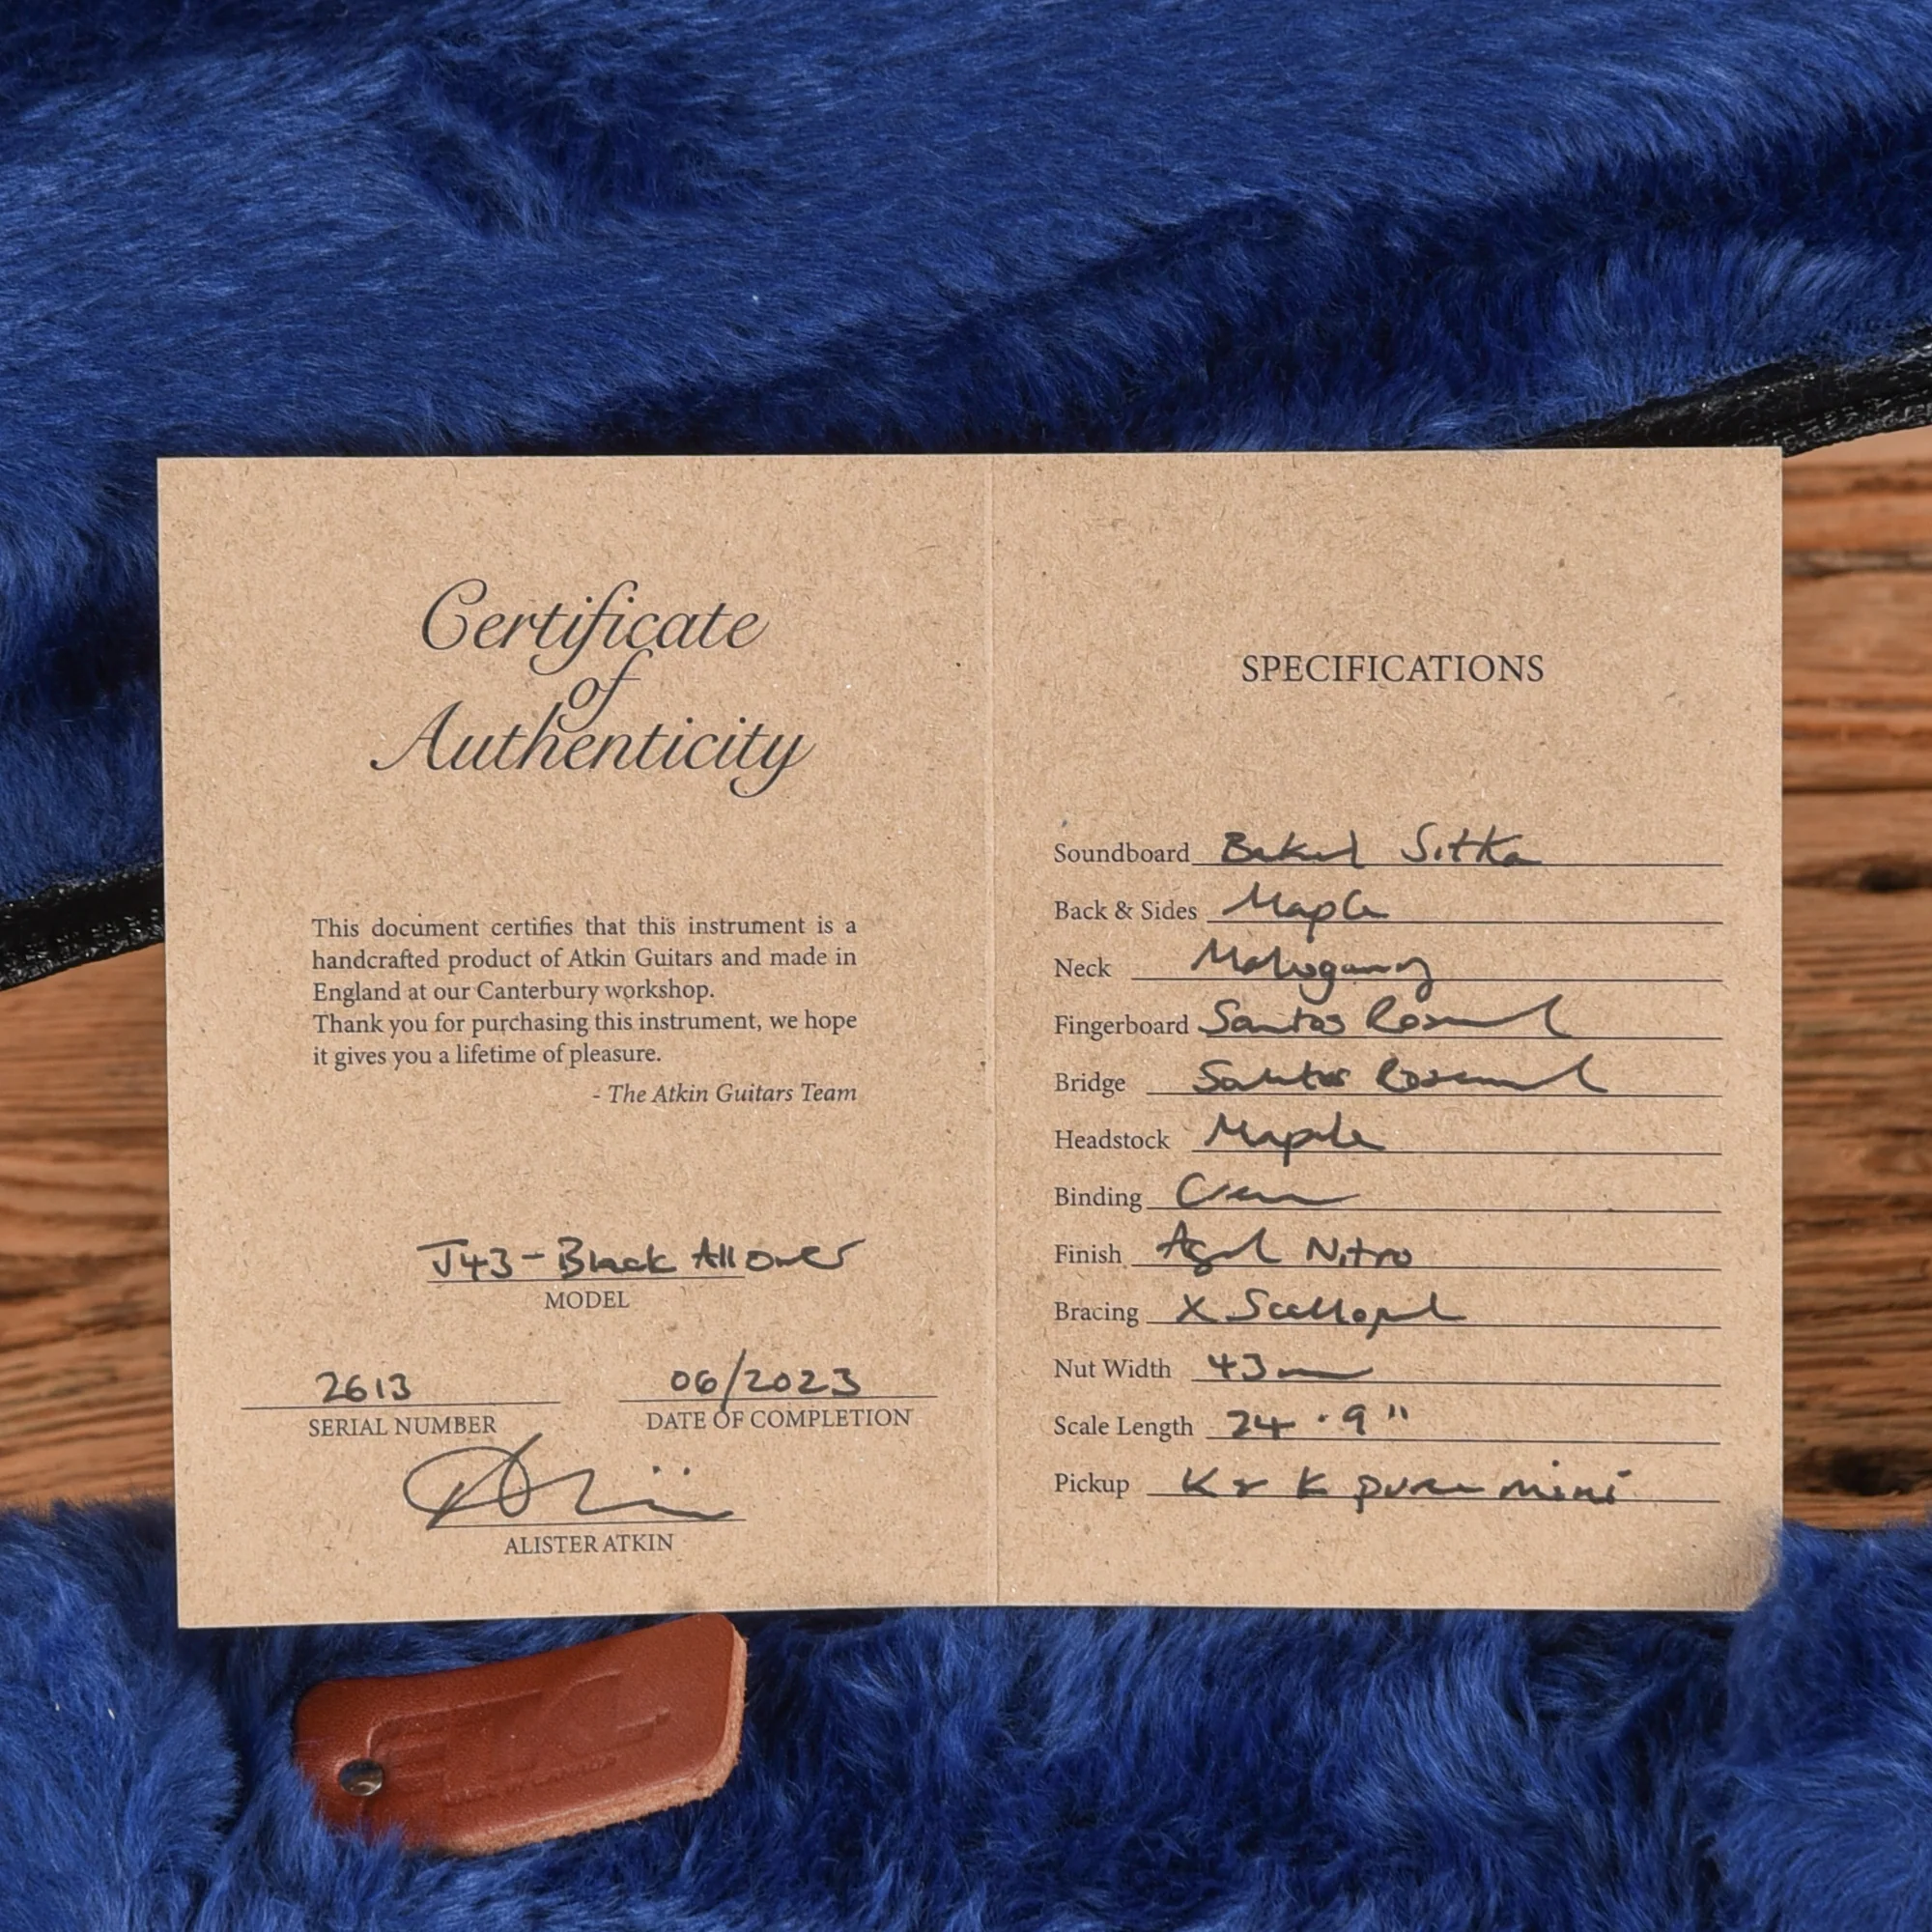 Certificate
of
Authenticity
This document certifies that this instrument is a
handcrafted product of Atkin Guitars and made in
England at our Canterbury workshop.
Thank you for purchasing this instrument, we hope
it gives you a lifetime of pleasure.
- The Atkin Guitars Team
J43 - Black All Over
MODEL
2613
SERIAL NUMBER
06/2023
DATE OF COMPLETION
ALISTER ATKIN
SPECIFICATIONS
Soundboard Baked Sitka
Back & Sides Maple
Neck Mahogany
Fingerboard Santos Rosewood
Bridge Santos Rosewood
Headstock Maple
Binding Cream
Finish Aged Nitro
Bracing X Scalloped
Nut Width 43mm
Scale Length 24.9"
Pickup K & K pure mini